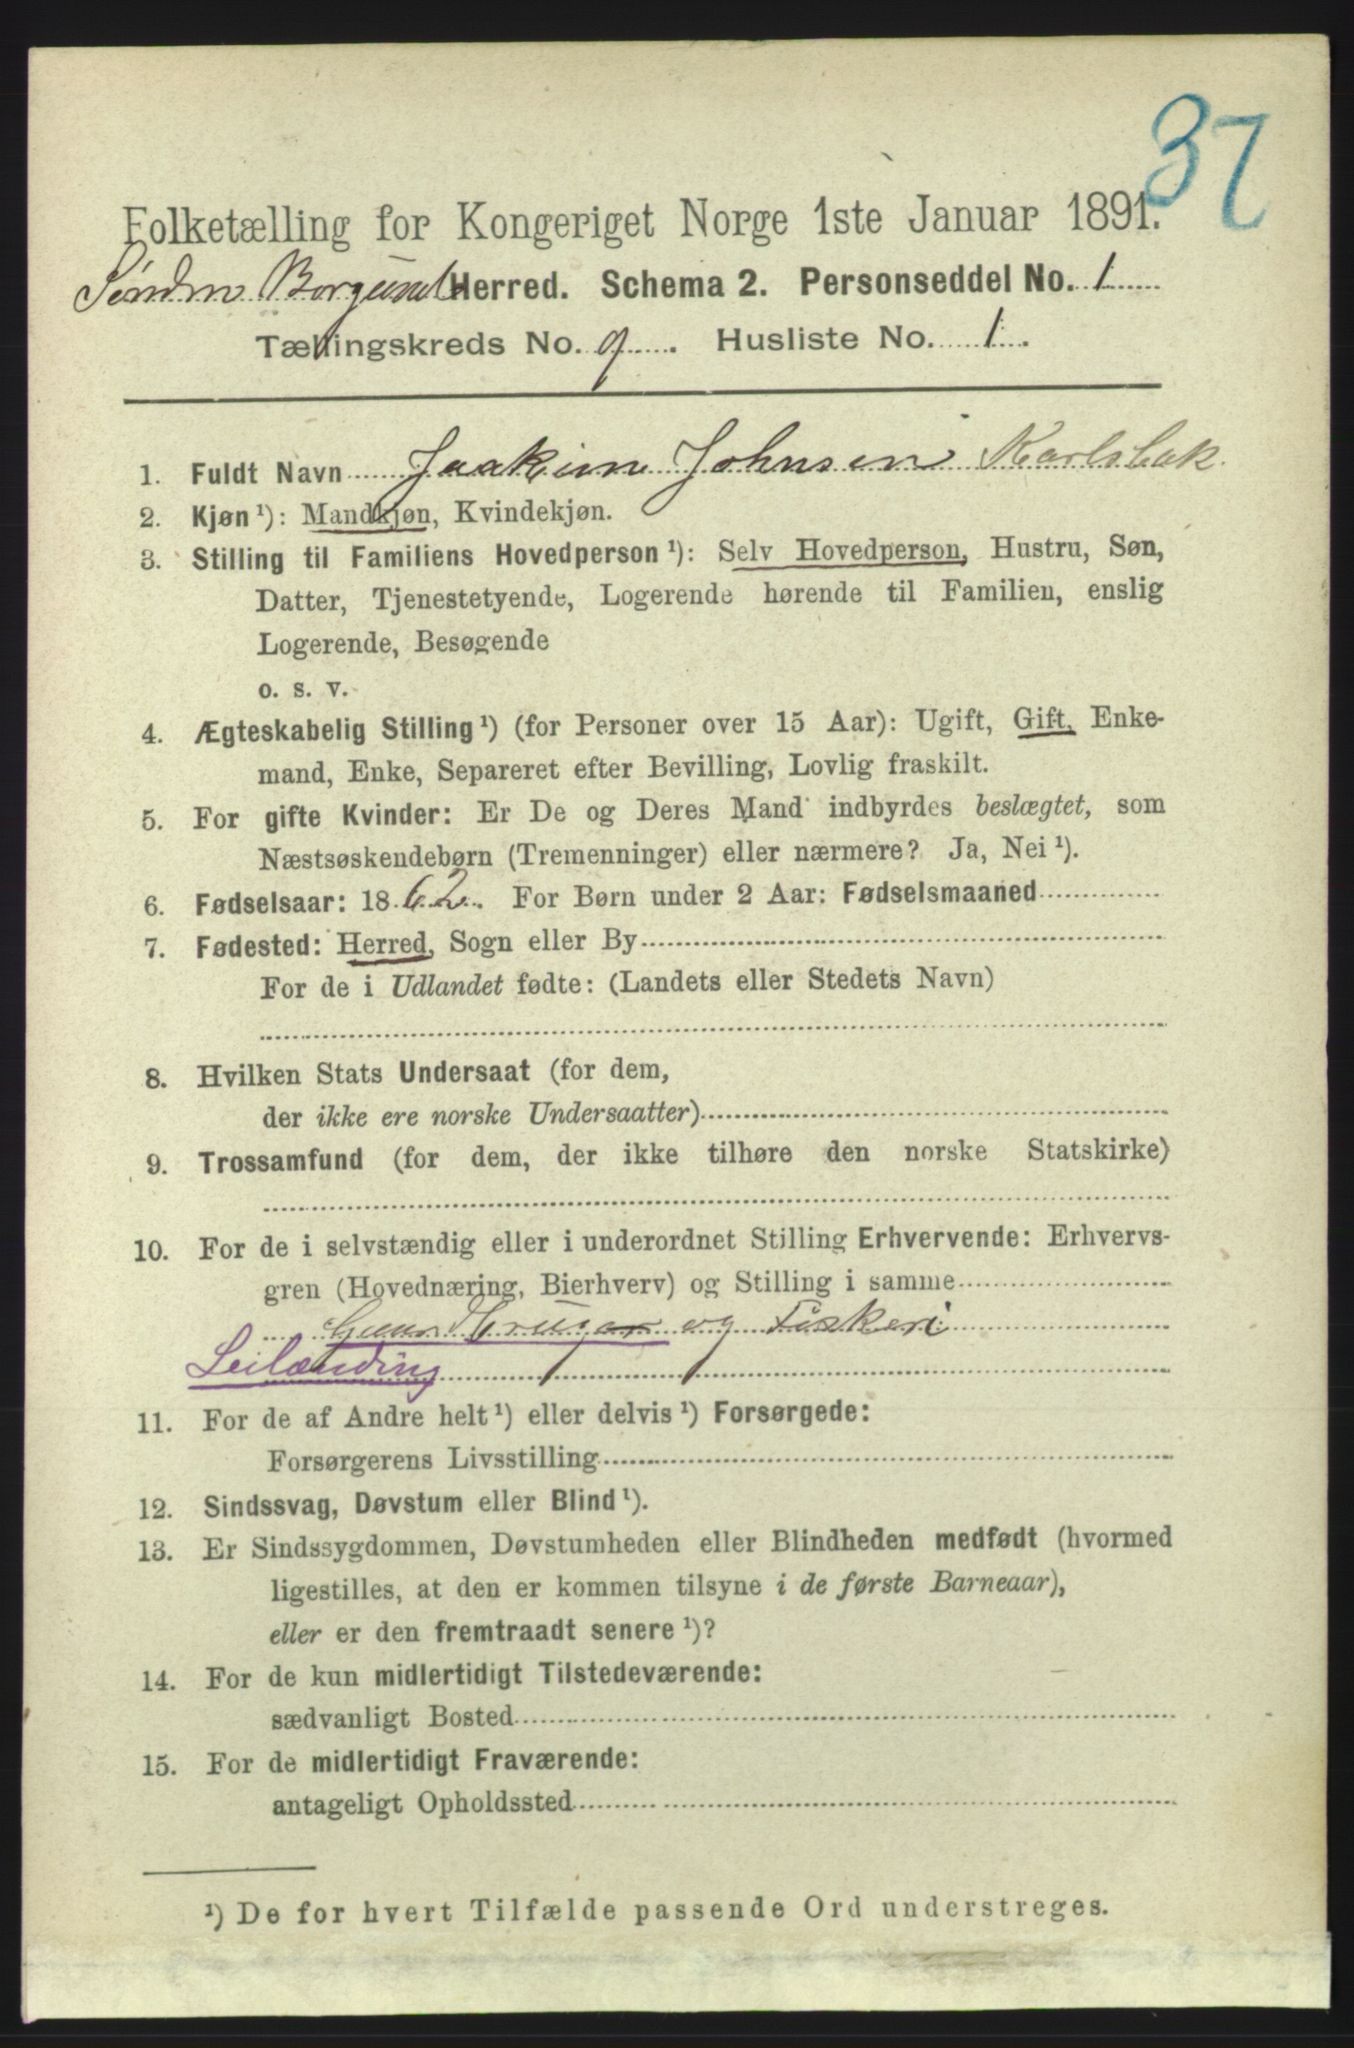 37
Folketælling for Kongeriget Norge 1ste Januar 1891.
Søndre Borgund Herred. Schema 2. Personseddel No. 1
Tællingskreds No. 9. Husliste No. 1.
1. Fuldt Navn Joakim Johnsen Karlsbak
2. Kjøn ¹): Mandkjøn, Kvindekjøn.
3. Stilling til Familiens Hovedperson ¹): Selv Hovedperson, Hustru, Søn,
Datter, Tjenestetyende, Logerende hørende til Familien, enslig
Logerende, Besøgende
o. s. v.
4. Ægteskabelig Stilling ¹) (for Personer over 15 Aar): Ugift, Gift, Enke-
mand, Enke, Separeret efter Bevilling, Lovlig fraskilt.
5. For gifte Kvinder: Er De og Deres Mand indbyrdes beslægtet, som
Næstsøskendebørn (Tremenninger) eller nærmere? Ja, Nei ¹).
6. Fødselsaar: 1862. For Børn under 2 Aar: Fødselsmaaned
7. Fødested: Herred, Sogn eller By
For de i Udlandet fødte: (Landets eller Stedets Navn)
8. Hvilken Stats Undersaat (for dem,
der ikke ere norske Undersaatter)
9. Trossamfund (for dem, der ikke tilhøre den norske Statskirke)
10. For de i selvstændig eller i underordnet Stilling Erhvervende: Erhvervs-
gren (Hovednæring, Bierhverv) og Stilling i samme
og Fiskeri
Leilænding
11. For de af Andre helt ¹) eller delvis ¹) Forsørgede:
Forsørgerens Livsstilling
12. Sindssvag, Døvstum eller Blind ¹).
13. Er Sindssygdommen, Døvstumheden eller Blindheden medfødt (hvormed
ligestilles, at den er kommen tilsyne i de første Barneaar),
eller er den fremtraadt senere ¹)?
14. For de kun midlertidigt Tilstedeværende:
sædvanligt Bosted
15. For de midlertidigt Fraværende:
antageligt Opholdssted
¹) De for hvert Tilfælde passende Ord understreges.